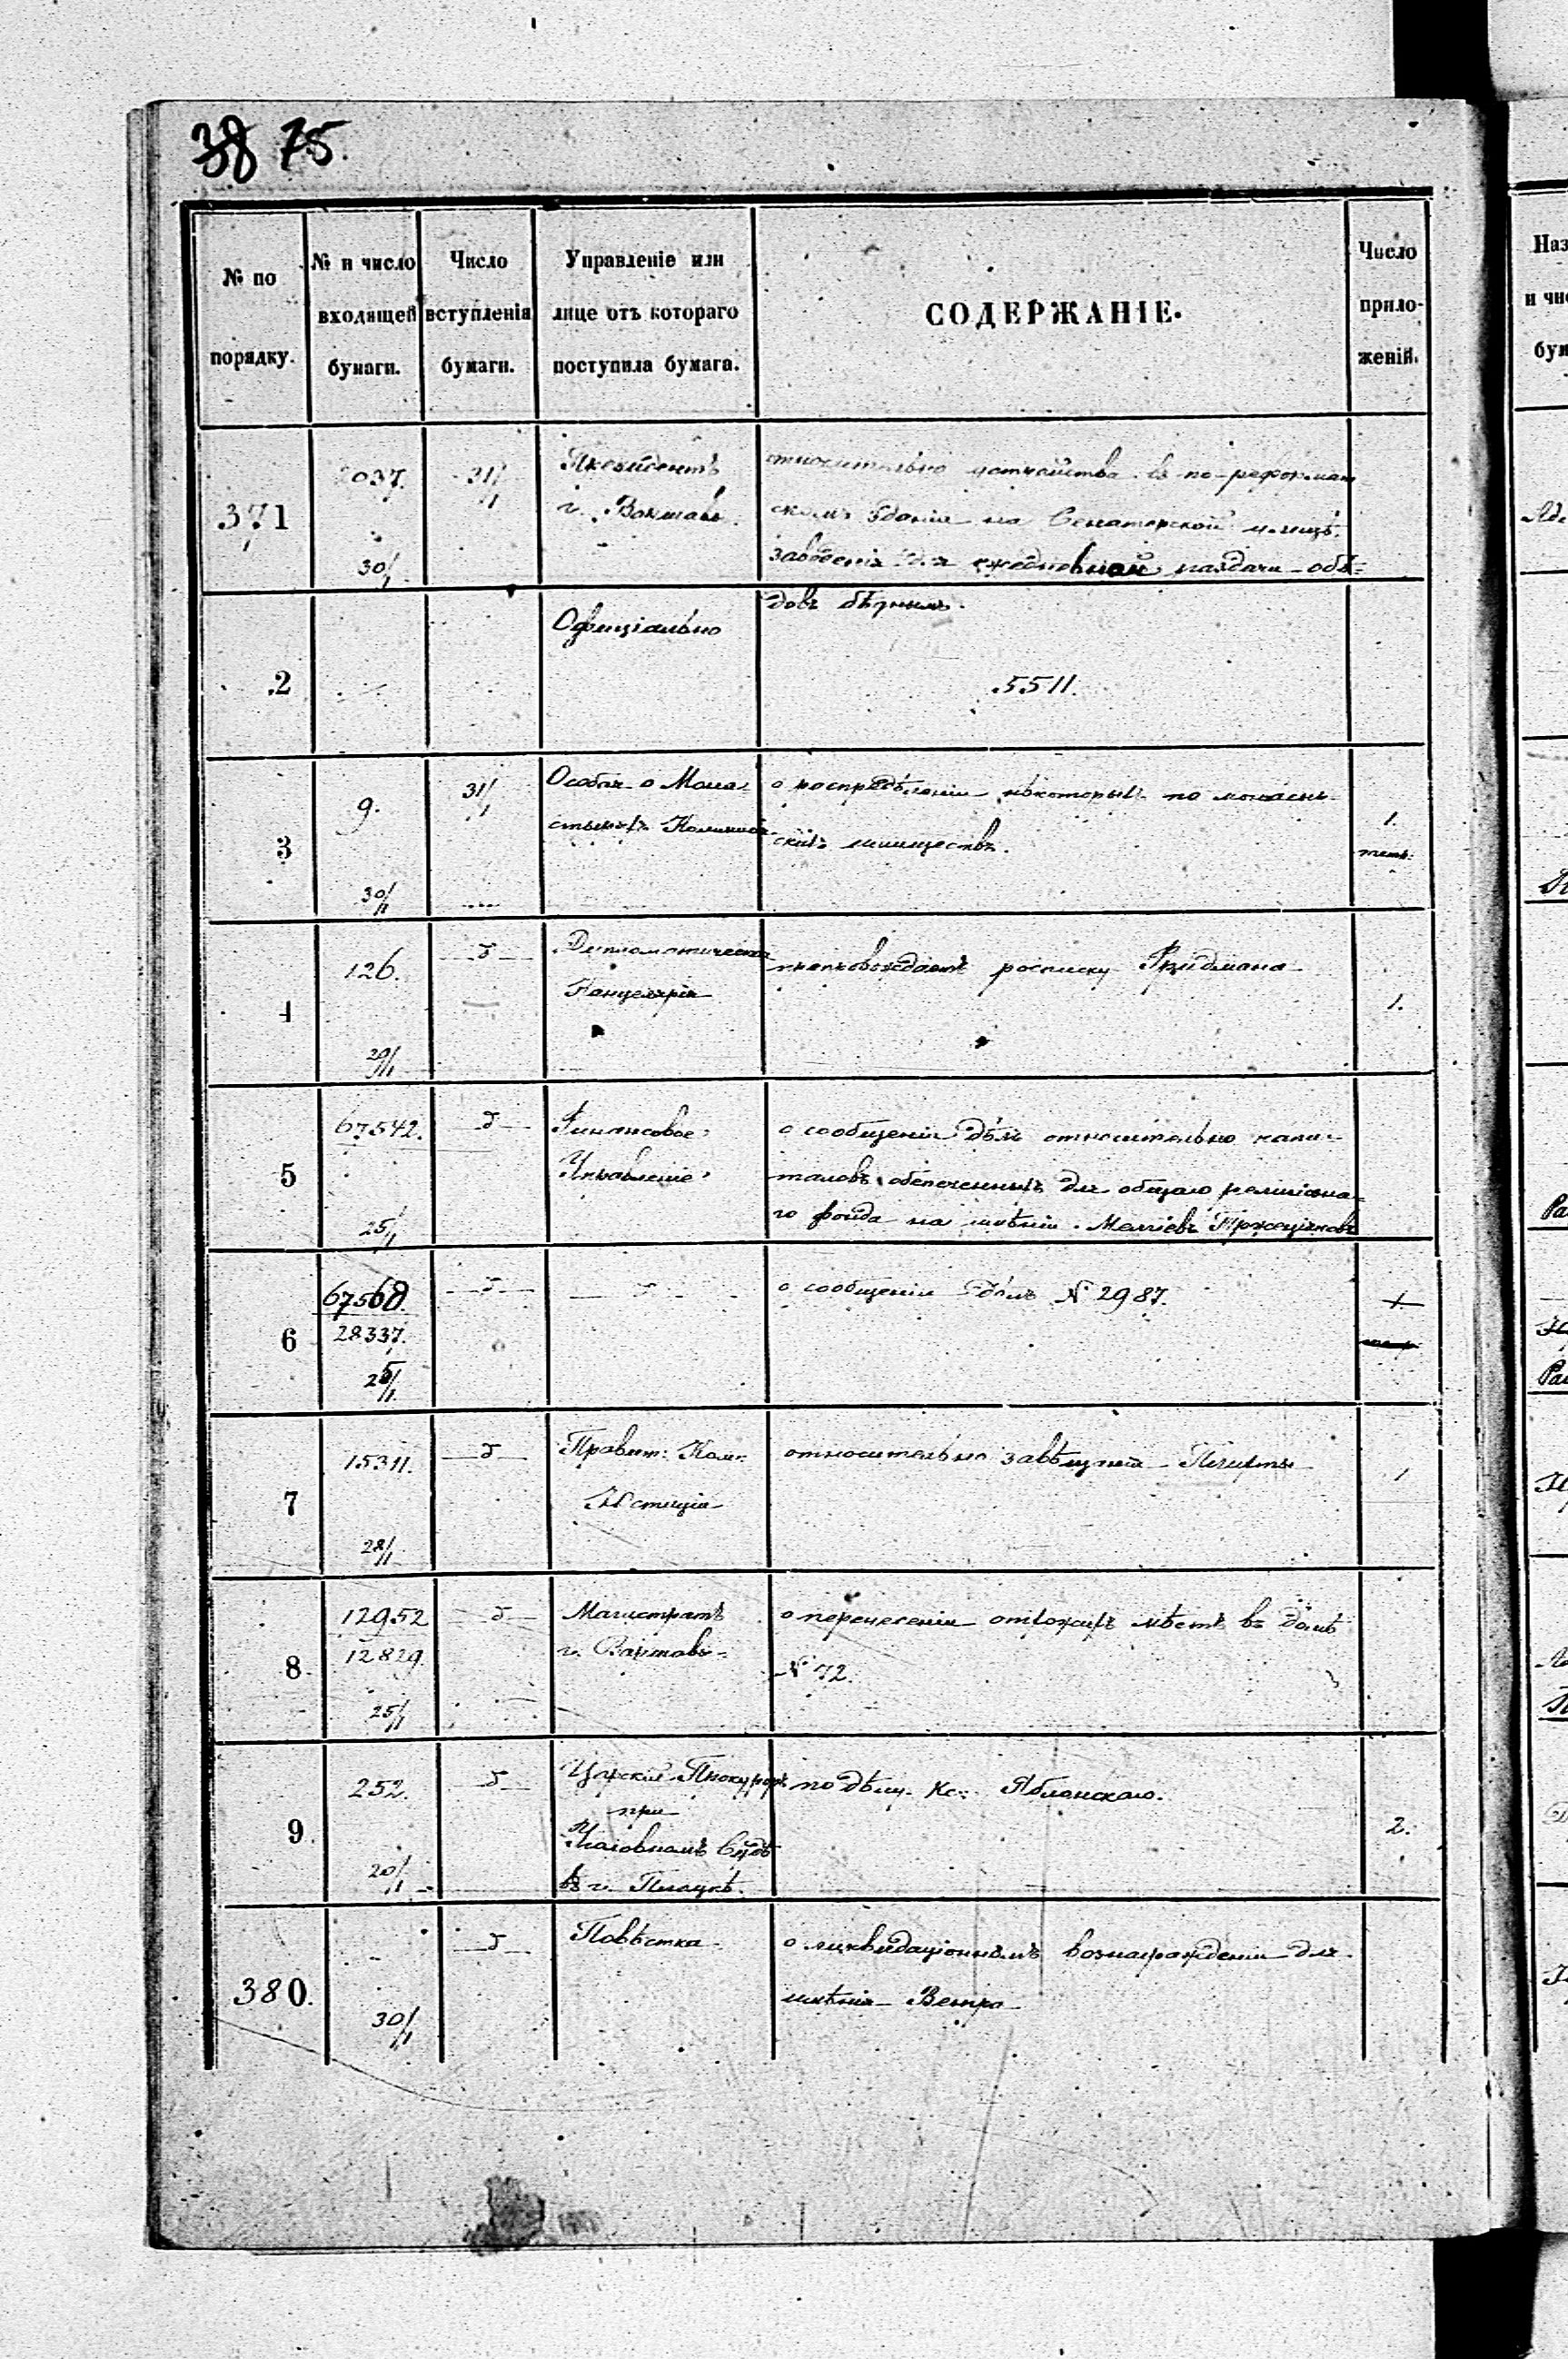 38 75.
№ по порядку.
№ и число входящей бумаги.
Число вступленія бумаги.
Управленіе или лице отъ котораго поступила бумага.
СОДЕРЖАНІЕ.
Число прило-женій.
371
2037.
30/1
31/1
Президентъ
г. Варшавы.
относительно устройства въ по-реформат
скомъ зданіи на Сенаторской улицѣ.
заведенія для ежедневной раздачи обѣ-
довъ бѣднымъ.
2
Офиціально
5511.
3
9.
30/1
31/1
Особая о Мона-
стыряхъ
о распредѣленіи нѣкоторыхъ по монасты-
скихъ имуществъ.
1.
4
126.
29/1
Дипломатическая
Канцелярія
препровождаетъ росписку Фридмана
1.
5
67542.
25/1
Финансовое
Управленіе
о сообщеніи дѣлъ относительно капи-
таловъ обепеченныхъ для общаго религіозна-
го фонда на имѣніи
6
67568
28337.
25/1
о сообщеніи дѣлъ № 2987.
1
7
15311.
28/1
Правит: Ком:
Юстиціи
относительно завѣщанія
1
8
12952
12829.
25/1
Магистратъ
г. Варшавы
о перенесеніи отхожихъ мѣстъ въ домѣ
№ 72.
9.
252.
20/1
Царскій Прокуроръ
при
Уголовномъ Судѣ
въ г. Плоцкѣ.
по дѣлу Кс: Яблонскаго.
2.
380.
30/1
Повѣстка
о ликвидаціонномъ вознагражденіи для
имѣнія